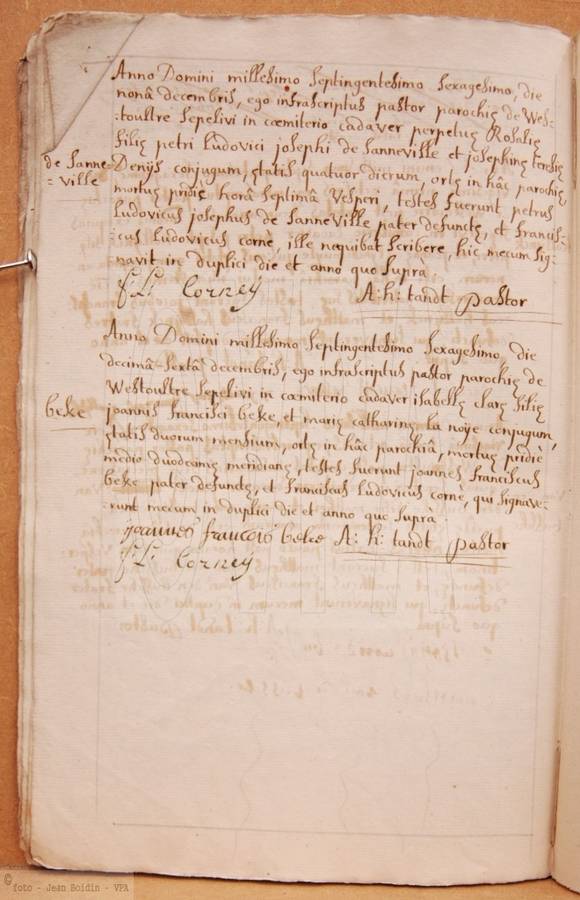 Anno Domini millesimo septingentesimo sexagesimo, die
nonâ decembris, ego infrascriptus pastor parochię de Wes-
-toultre sepelivi in cœmiterio cadaver perpetuę Rosalię
filię petri Ludovici josephi de sanneville et josephinę teresię
de sanne-
= ville
Denijs conjugum, ętatis quatuor dierum, ortę in hâc parochiâ,
mortuę pridiè horâ septimâ vesperi, testes fuerunt petrus
Ludovicus josephus de sanneville pater defunctę, et francis-
-cus Ludovicus corné, ille nequibat scribere, hic mecum sig-
-navit in duplici die et anno quo suprà
f: L: Corney A: h: tandt pastor
Anno Domini millesimo septingentesimo sexagesimo die
decimâ-sextâ decembris, ego infrascriptus pastor parochię de
Westoultre sepelivi in cœmiterio cadaver isabellę clarę filię
beke
joannis francisci beke, et marię catharinę la noÿe conjugum,
ętatis duorum mensium, ortę in hâc parochiâ, mortuę pridiè
medio duodecimę meridianę, testes fuerunt joannes franciscus
beke pater defunctę, et franciscus Ludovicus corné, qui signave-
-runt mecum in duplici die et anno quo suprà
joannes francois beke A: h: tandt pastor
f: L: Corney
© foto - Jean Boidin - VPA